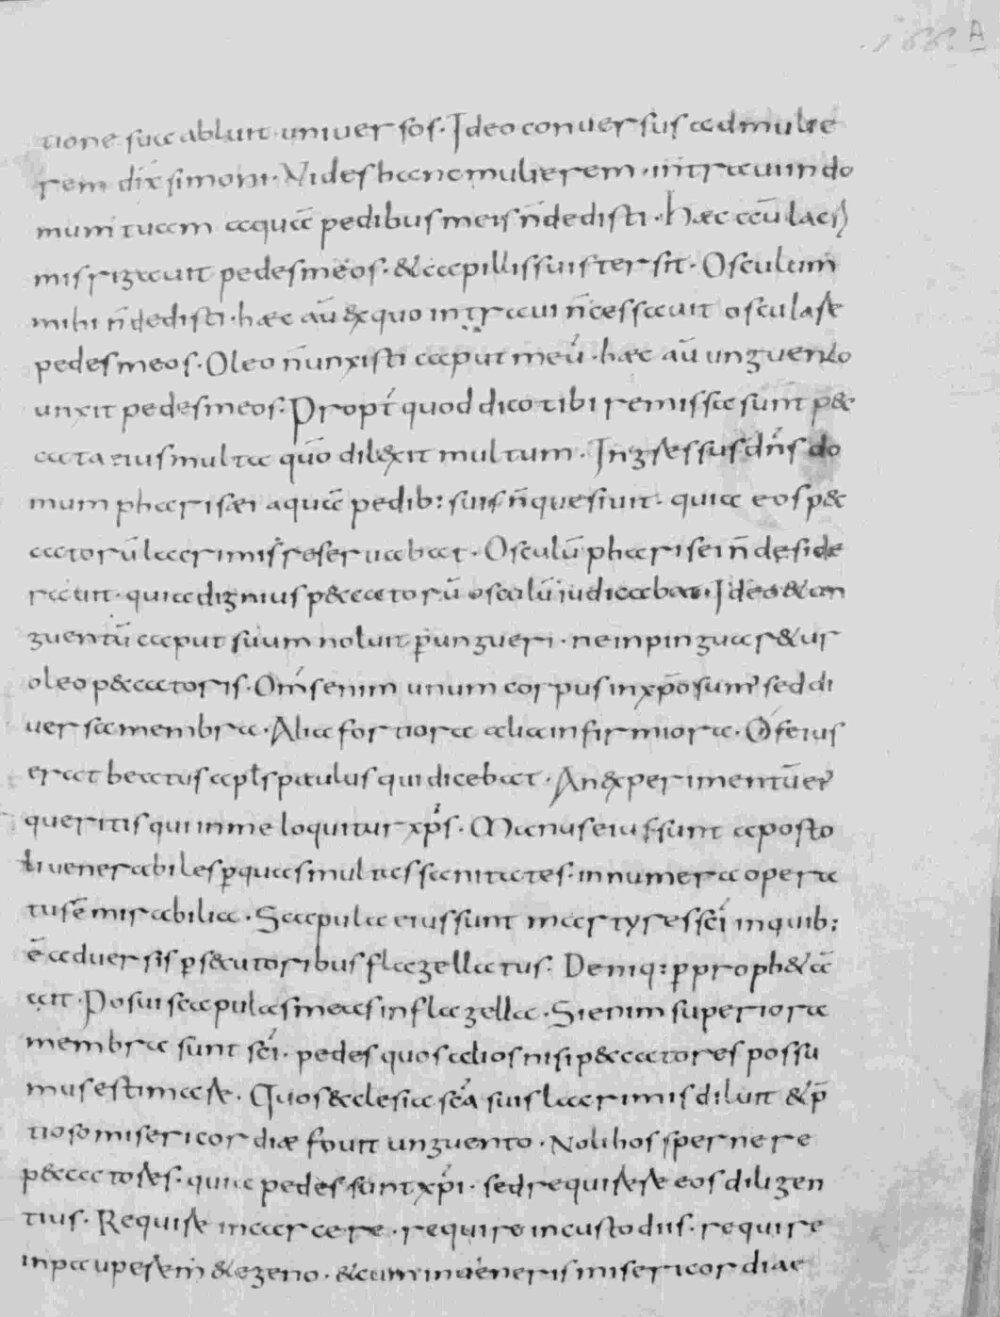 .166. A
tione sua abluit universos. Ideo conversus ad mulie
rem dix̄ simoni. Vides hanc mulierem. intravi in do
mum tuam aquā pedibus meis n̄ dedisti. haec aū lacri
mis rigavit pedes meos. & capillis suis tersit. Osculum
mihi n̄ dedisti. haec aū ex quo intravi n̄ cessavit osculare
pedes meos. Oleo n̄ unxisti caput meū. haec aū unguento
unxit pedes meos. Propt̄ quod dico tibi remissa sunt p&
cata eius multa quō dilexit multum. Ingressus dn̄s do
mum pharisaei aquā pedib: suis n̄ quesivit. quia eos p&
catorū lacrimis reservabat. Osculū pharisei n̄ deside
ravit. quia dignius p&catorū osculū iudicabat. Ideo & un
guentū caput suum noluit pungueri. ne inpinguar&ur
oleo p&catoris. Om̄s enim unum corpus in xp̄o sum' sed di
versa membra. Alia fortiora alia infirmiora. Os eius
erat beatus apl̄s paulus qui dicebat. An experimentū ei'
queritis qui in me loquitur xp̄s. Manus eius sunt aposto
li venerabiles p quas multas sanitates. innumera opera
tus ē mirabilia. Scapula eius sunt martyres sc̄i in quib:
ē adversis ps&utoribus flagellatus. Deniq: p proph&ā
ait. Posui scapulas meas in flagella. Si enim superiora
membra sunt sc̄i. pedes quos alios nisi p&catores possu
mus estimare. Quos &clesia sc̄a suis lacrimis diluit & p̄
tioso misericordiae fovit unguento. Noli hos spernere
p&catores. quia pedes sunt xp̄i. sed requirere eos diligen
tius. Require in carcere. require in custodiis. require
in pauperem & egeno. & cum inveneris misericordiae